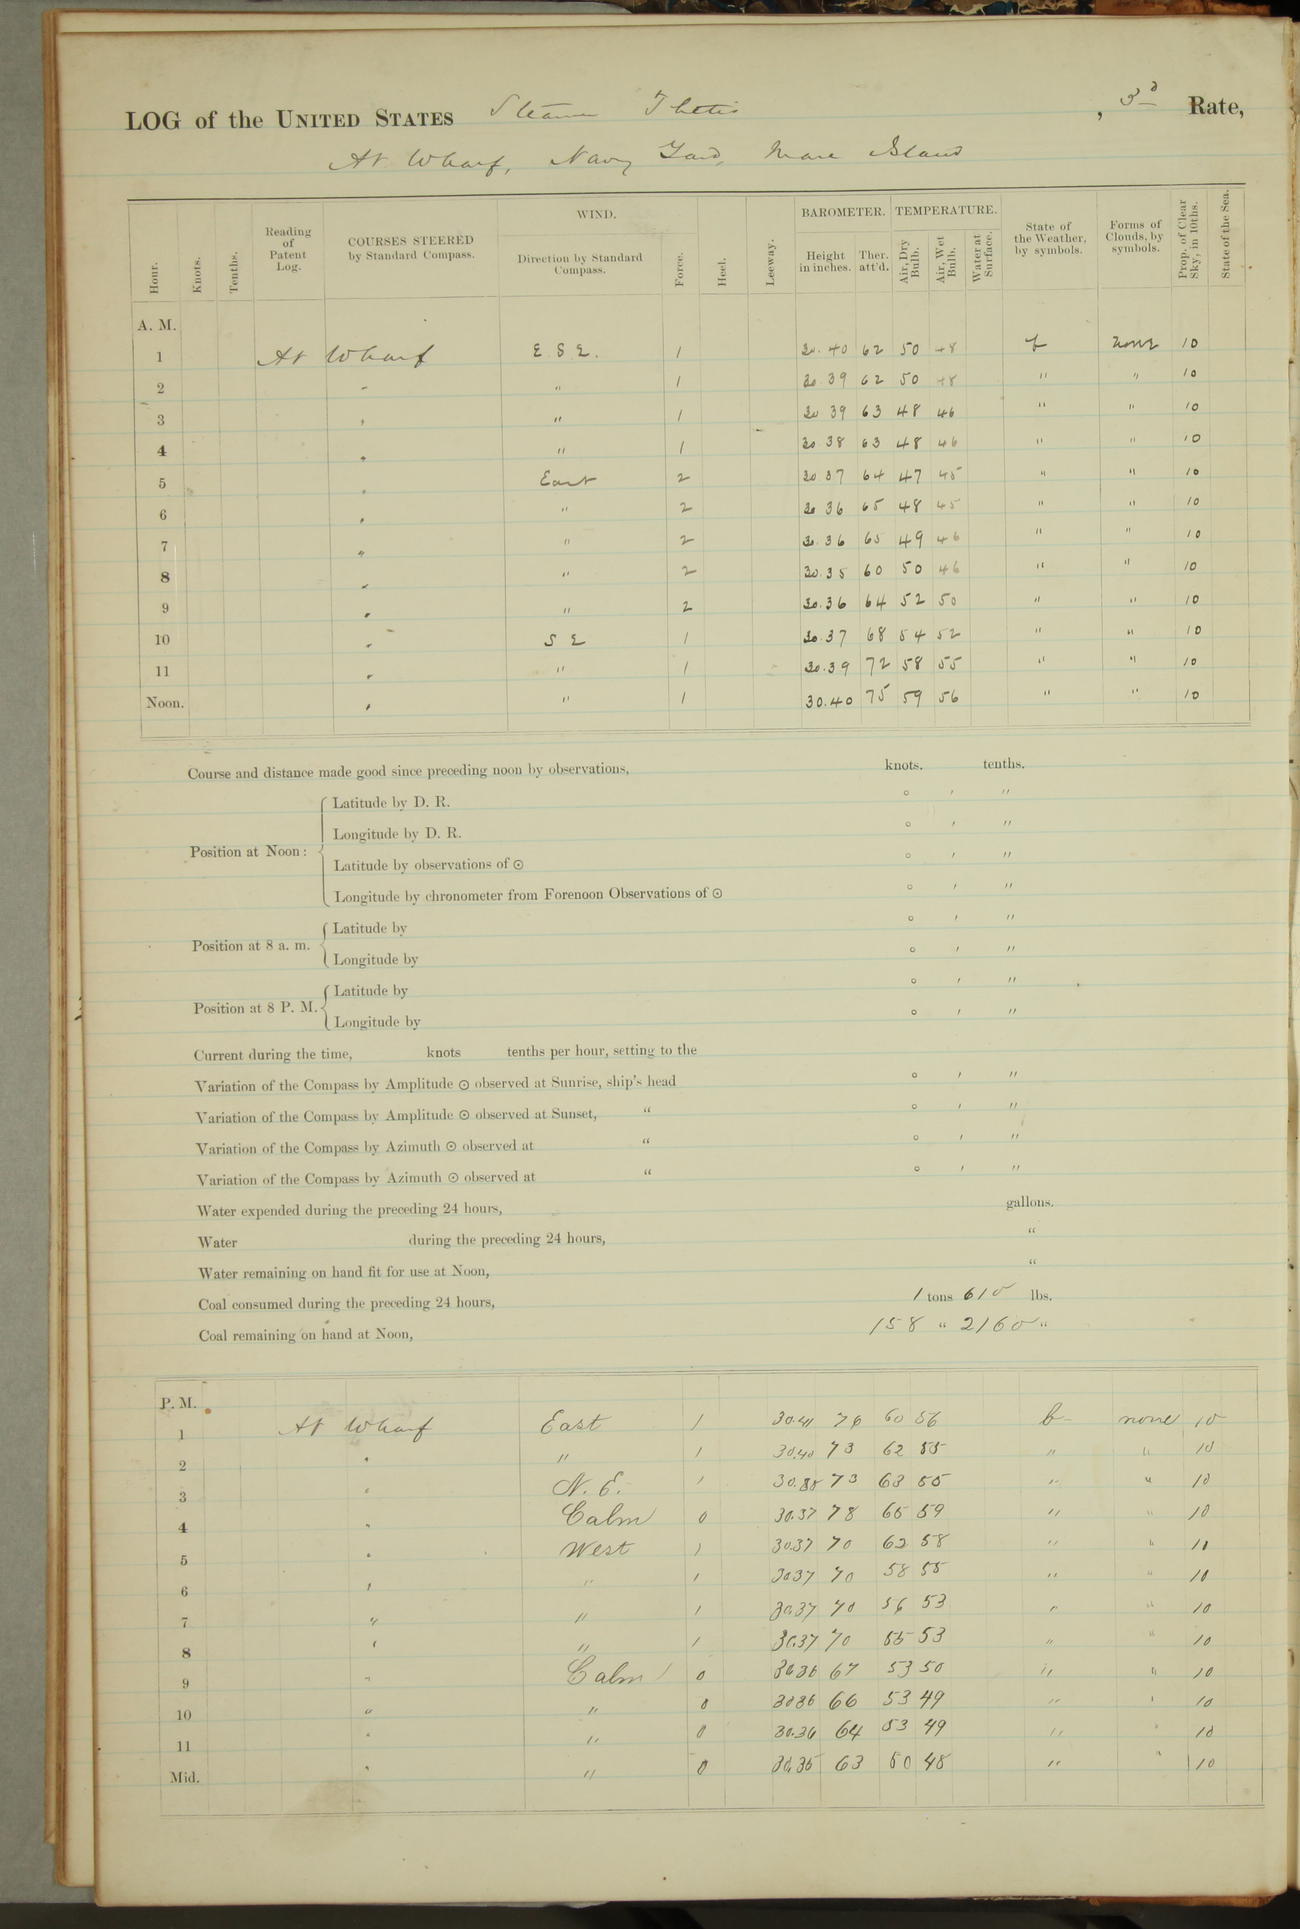 LOG of the UNITED STATES Steamer Thetis, 3d Rate,
At Wharf, Navy Yard, Mare Island
Hour. Knots. Tenths. Reading of Patent Log. COURSES STEERED by Standard Compass. WIND. Direction by Standard Compass. Force. Heel. Leeway. BAROMETER. Height in inches. Ther. att'd. TEMPERATURE. Air, Dry Bulb. Air, Wet Bulb. Water at Surface. State of the Weather, by symbols. Forms of Clouds, by symbols. Prop. of Clear Sky, in 10ths. State of the Sea.
A. M.
1 At Wharf E S E. 1 30.40 62 50 48 b none 10
2 " " 1 30 39 62 50 48 " " 10
3 " " 1 30 39 63 48 46 " " 10
4 " " 1 30 38 63 48 46 " " 10
5 " East 2 30 37 64 47 45 " " 10
6 " " 2 30 36 65 48 45 " " 10
7 " " 2 30.36 65 49 46 " " 10
8 " " 2 30.35 60 50 46 " " 10
9 " " 2 30.36 64 52 50 " " 10
10 " S E 1 30.37 68 54 52 " " 10
11 " " 1 30.39 72 58 55 " " 10
Noon. " " 1 30.40 75 59 56 " " 10
Course and distance made good since preceding noon by observations, knots. tenths.
Position at Noon:
Latitude by D. R. ° ′ ″
Longitude by D. R. ° ′ ″
Latitude by observations of ⊙ ° ′ ″
Longitude by chronometer from Forenoon Observations of ⊙ ° ′ ″
Position at 8 a. m.
Latitude by ° ′ ″
Longitude by ° ′ ″
Position at 8 P. M.
Latitude by ° ′ ″
Longitude by ° ′ ″
Current during the time, knots tenths per hour, setting to the
Variation of the Compass by Amplitude ⊙ observed at Sunrise, ship's head ° ′ ″
Variation of the Compass by Amplitude ⊙ observed at Sunset, " ° ′ ″
Variation of the Compass by Azimuth ⊙ observed at " ° ′ ″
Variation of the Compass by Azimuth ⊙ observed at " ° ′ ″
Water expended during the preceding 24 hours, gallons.
Water during the preceding 24 hours, "
Water remaining on hand fit for use at Noon, "
Coal consumed during the preceding 24 hours, 1 tons 610 lbs.
Coal remaining on hand at Noon, 158 " 2160 "
P. M.
1 At Wharf East 1 30.41 76 60 56 b none 10
2 " " 1 30.40 73 62 55 " " 10
3 " N. E. 1 30.38 73 63 55 " " 10
4 " Calm 0 30.37 78 65 59 " " 10
5 " West 1 30.37 70 62 58 " " 10
6 " " 1 30.37 70 58 55 " " 10
7 " " 1 30.37 70 56 53 " " 10
8 " " 1 30.37 70 55 53 " " 10
9 " Calm 0 30.36 67 53 50 " " 10
10 " " 0 30.36 66 53 49 " " 10
11 " " 0 30.36 64 53 49 " " 10
Mid. " " 0 30.35 63 50 48 " " 10